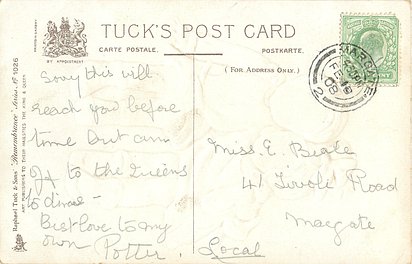 TUCK'S POST CARD
CARTE POSTALE.
POSTKARTE.
BY APPOINTMENT
(FOR ADDRESS ONLY.)
Raphael Tuck & Sons' "Remembrance" Series No 1026
ART PUBLISHERS TO THEIR MAJESTIES THE KING & QUEEN
MARGATE
FE
08
2
Sorry this will
reach you before
time but am
off to the Queens
to dine -
Best love to my
own Potter
Miss. E. Beale
41 Tivoli Road
Margate
Local